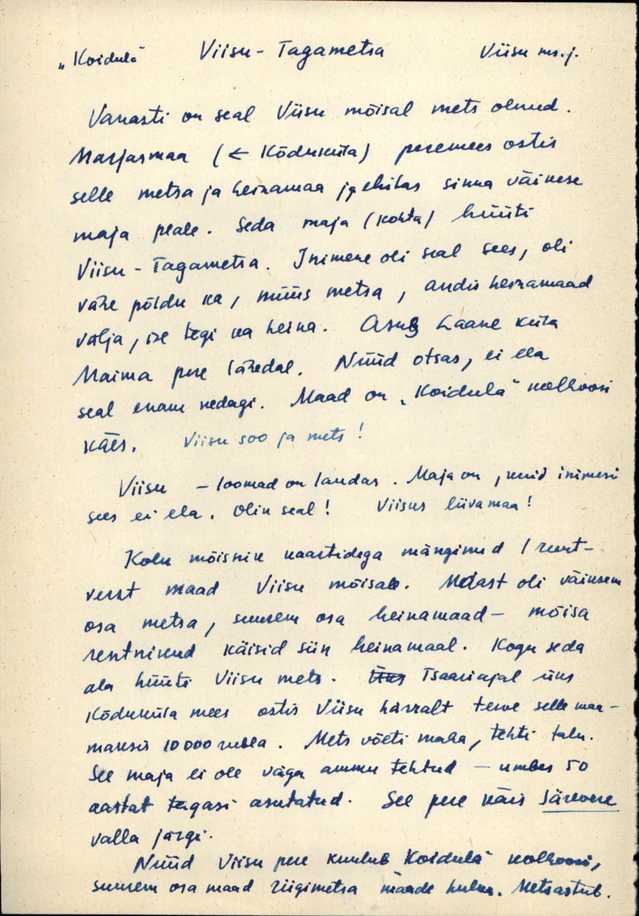 „Koidula" Viisu-Tagametsa Viisu ms.j.
Vanasti on seal Viisu mõisal mets olnud.
Marjasmaa (← Kõduküla) peremees ostis
selle metsa ja heinamaa ja ehitas sinna väikese
maja peale. Seda maja (kohta) hüüti
Viisu-Tagametsa. Inimene oli seal sees, oli
vähe põldu ka, müüs metsa, andis heinamaad
välja, ise tegi ka heina. Asub Laane küla
Maima pere lähedal. Nüüd otsas, ei ela
seal enam kedagi. Maad on „Koidula" kolhoosi
käes. Viisu soo ja mets!
Viisu – loomad on laudas. Maja on, kuid inimesi
sees ei ela. Olin seal! Viisus liivamaa!
Kolu mõisnik kaartidega mänginud 1 ruut-
verst maad Viisu mõisale. Sellest oli väiksem
osa metsa, suurem osa heinamaad – mõisa
rentnikud käisid siin heinamaal. Kogu seda
ala hüüti Viisu mets. Tsaariajal üks
Kõduküla mees ostis Viisu härralt terve selle maa –
maksis 10000 rubla. Mets võeti maha, tehti talu.
See maja ei ole väga ammu tehtud – umbes 50
aastat tagasi asutatud. See pere käis Särevere
valla järgi.
Nüüd Viisu pere kuulub Koidula" kolhoosi,
suurem osa maad riigimetsa maade hulka. Metsastub.